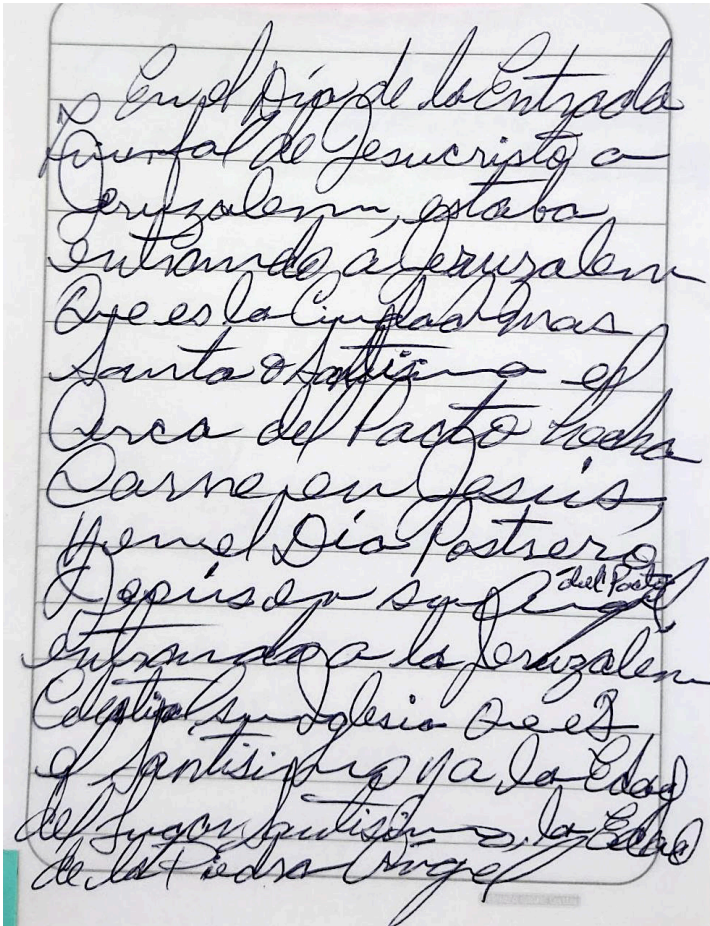 En el Día de la Entrada
Triunfal de Jesucristo a
Jeruzalem, estaba
entrando a Jeruzalem
Que es la Ciudad Mas
Santa o Santisima el
Arca del Pacto hecha
Carne en Jesús,
y en el Día Postrero
en su Angel del Pacto
entrando a la Jeruzalem
Celestial su Iglesia Que es
el Santisimo y a la Edad
del Lugar Santisimo, la Edad
de la Piedra Angel